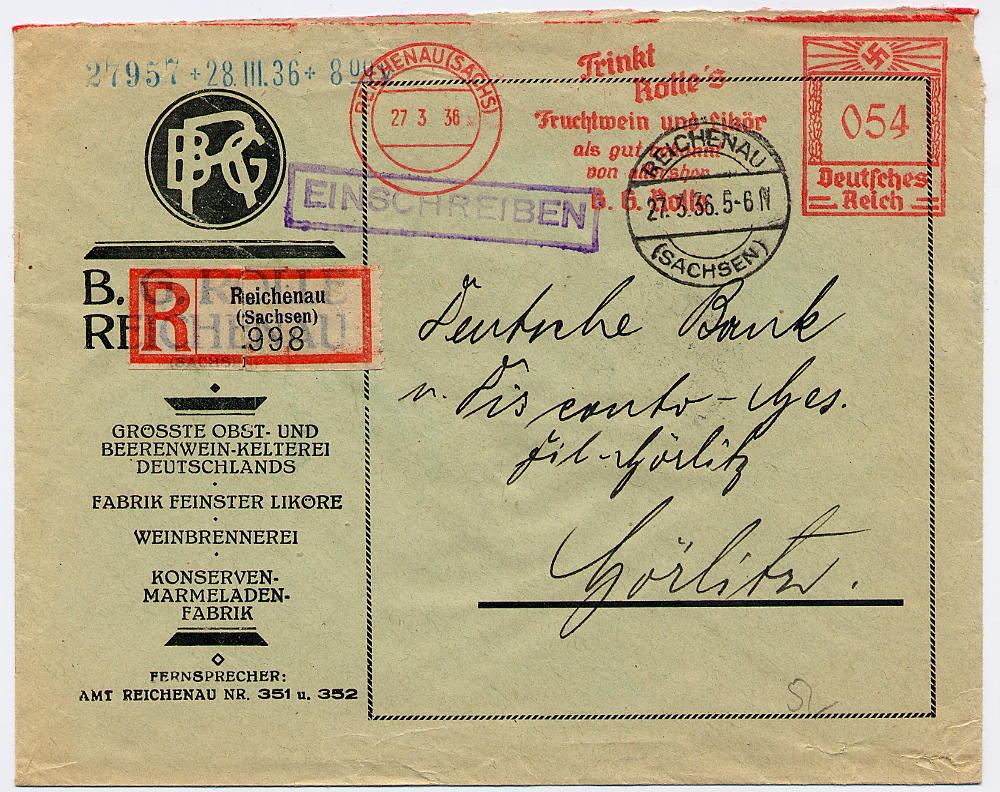 27957 + 28.III.36 + 8 00
REICHENAU (SACHS)
27 3 36
Trinkt
Rolle's
Fruchtwein und Likör
als gut
von
B. G. Rolle
054
Deutsches
Reich
REICHENAU
27.3.36.5-6 N
(SACHSEN)
EINSCHREIBEN
BGR
B. G. ROLLE
REICHENAU
(SACHS.)
R
Reichenau
(Sachsen)
998
GRÖSSTE OBST- UND
BEERENWEIN-KELTEREI
DEUTSCHLANDS
FABRIK FEINSTER LIKÖRE
WEINBRENNEREI
KONSERVEN-
MARMELADEN-
FABRIK
FERNSPRECHER:
AMT REICHENAU NR. 351 u. 352
Deutsche Bank
u. Disconto-Ges.
Fil. Görlitz
Görlitz.